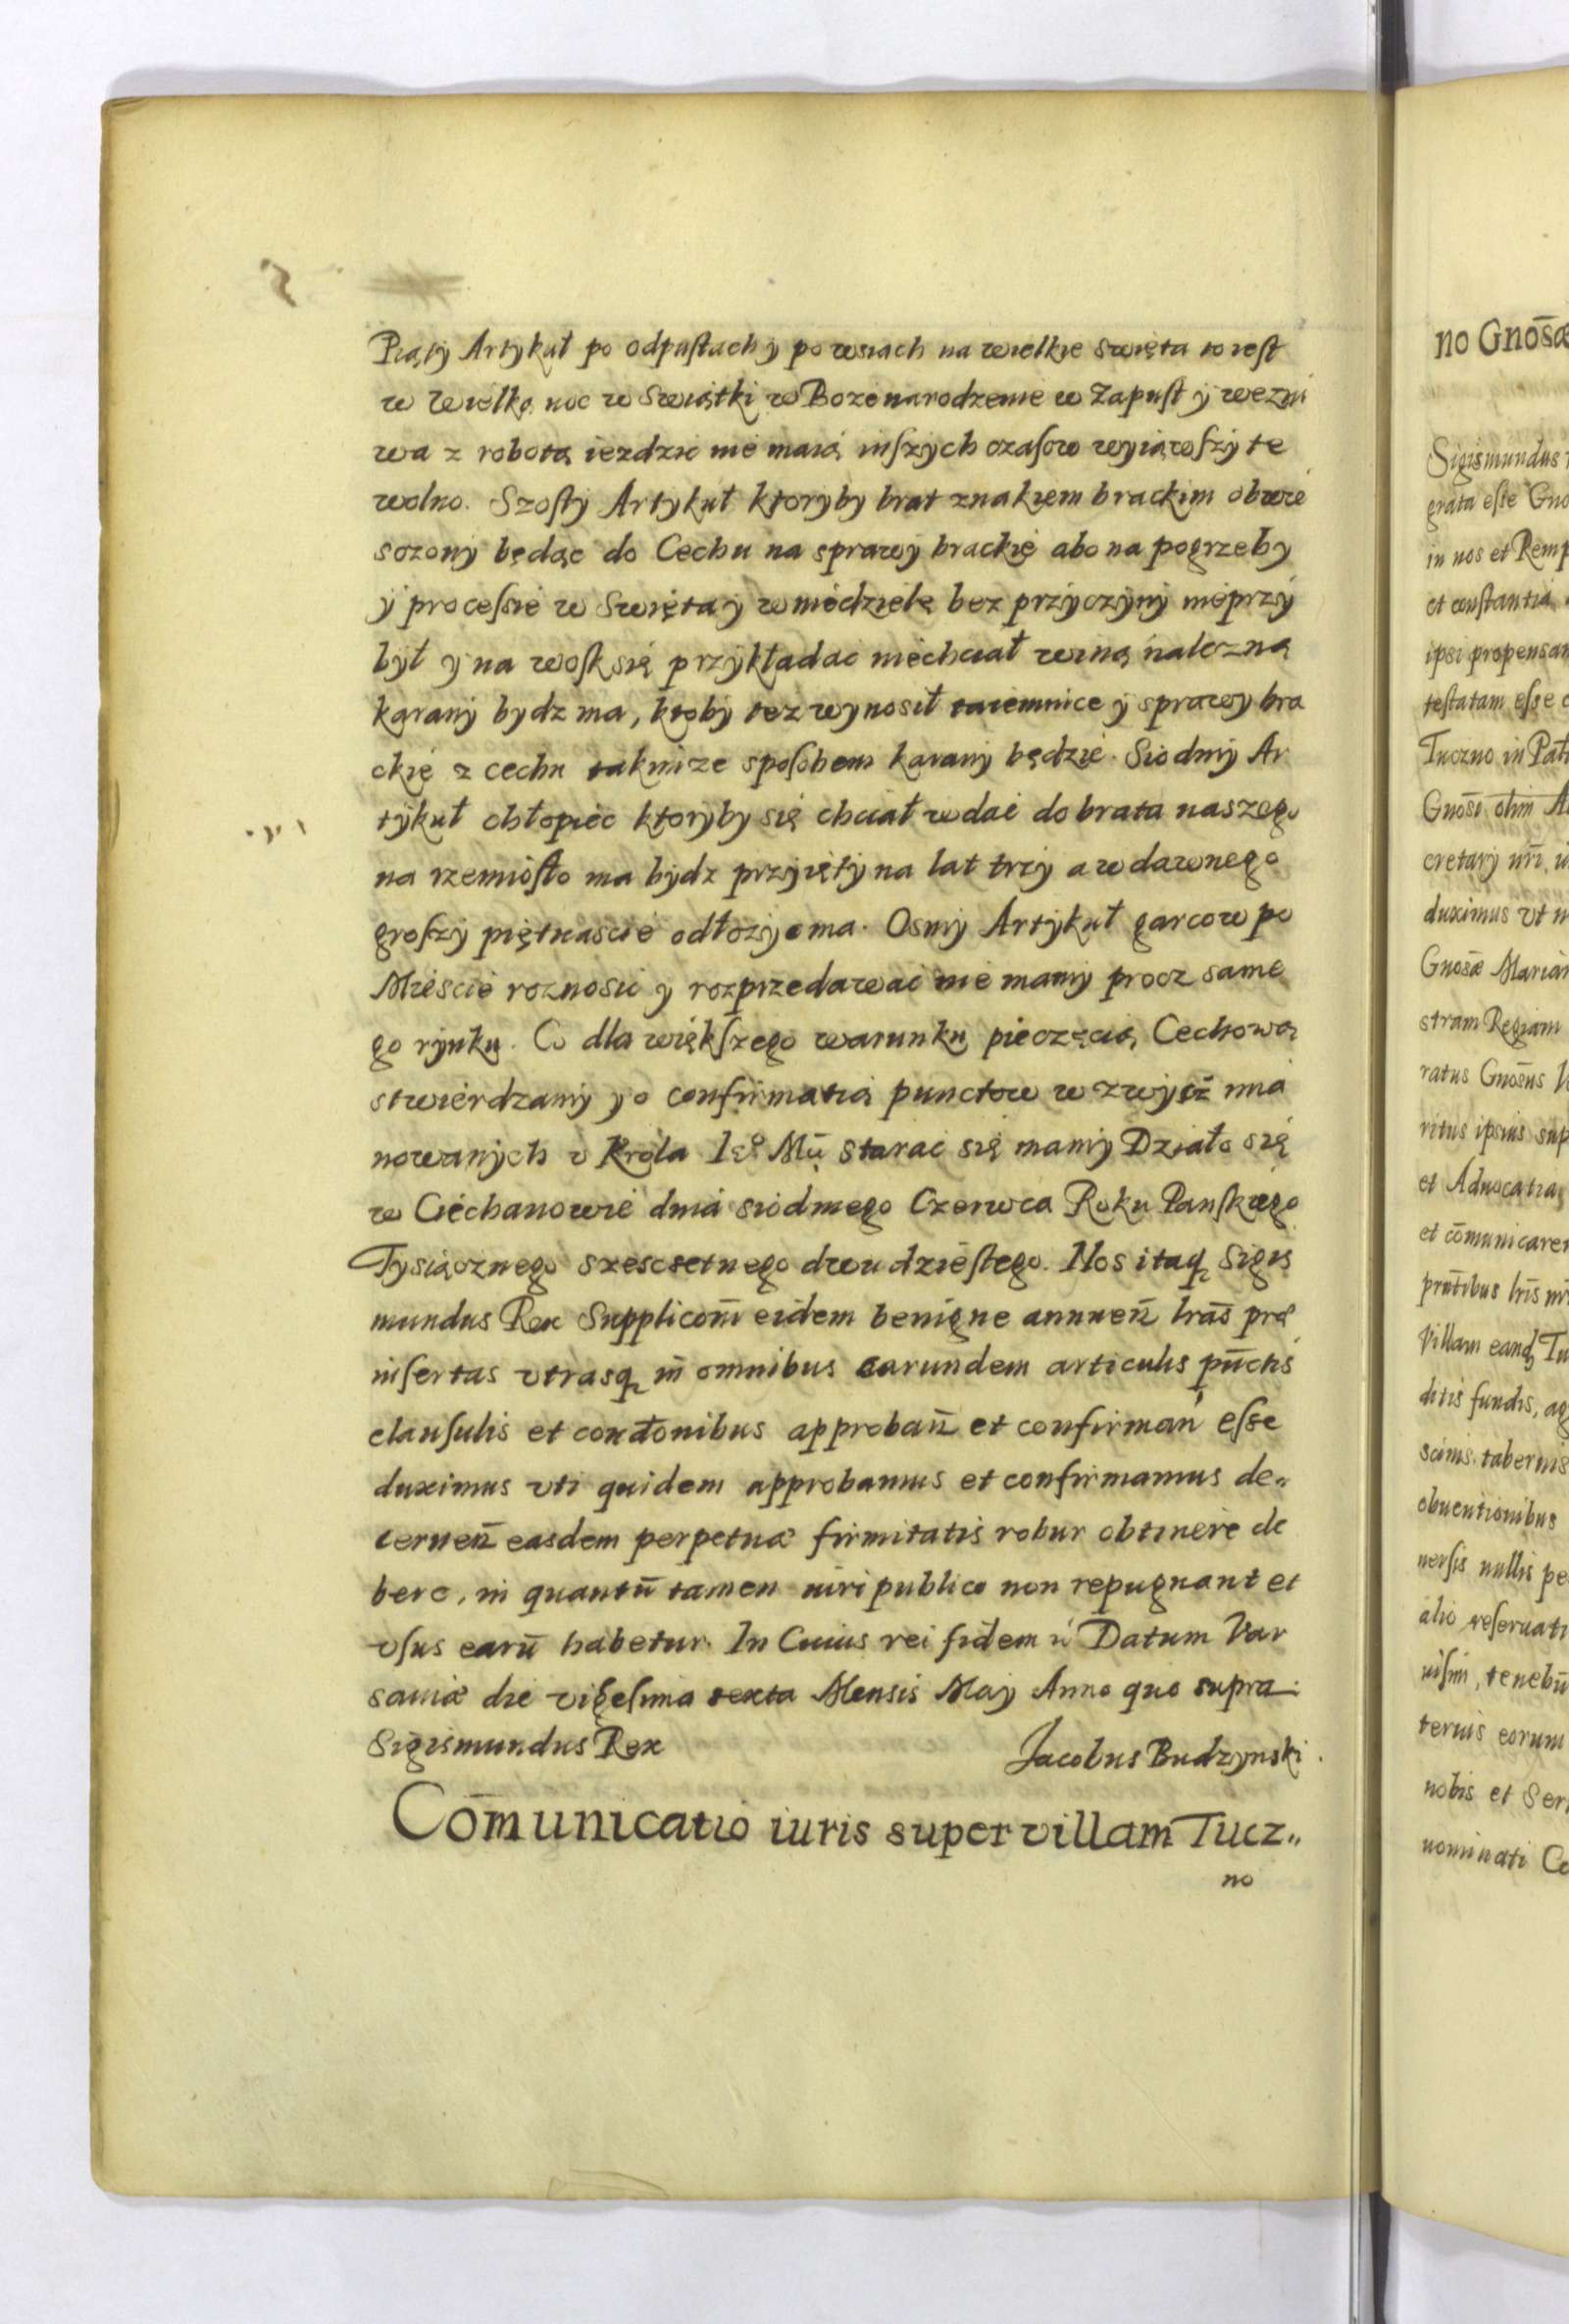 Piąty Artykuł po odpustach y po wsiach na wielkie święta to iest
w Wielką noc w Swiątki w Boże narodzenie w Zapust y we zni
wa z robotą iezdzic nie maią inszych czasow wyiąwszy te
wolno. Szosty Artykuł ktoryby brat znakiem brackim obwie
sczony będąc do Cechu na sprawy brackię abo na pogrzeby
y processie w Swięta y w niedzielę bez przyczyny nieprzy
był y na wosk się przykładac niechciał winą nalezną
karany bydz ma, ktoby tez wynosił taiemnice y sprawy bra
ckię z cechu takimze sposobem karany będzie. Siodmy Ar
tykuł chłopiec ktoryby się chciał wdać do brata naszego
na rzemiosło ma bydz przyięty na lat trzy a wdawnego
groszy piętnascie odłozyc ma. Osmy Artykuł garcow po
Miescie roznosic y rozprzedawac nie mamy procz same
go rynku. Co dla większego warunku pieczęcią Cechową
stwierdzamy y o confirmatią punctow wzwysz mia
nowanych v Krola Ie⁰ Mči starac się mamy Działo się
w Ciechanowie dnia siodmego Czerwca Roku Panskiego
Tysiącznego szescsetnego dwudziestego. Nos itaq̨ Sigis
mundus Rex Supplicōni eidem benigne annuen̄ lrās præ
insertas vtrasq̨ in omnibus earundem articulis pūctis
clausulis et condōnibus approban̄ et confirman̄ esse
duximus vti quidem approbamus et confirmamus de„
cernen̄ easdem perpetuæ firmitatis robur obtinere de
bere, in quantū tamen iuri publico non repugnant et
vsus earū habetur. In Cuius rei fidem Datum Var
saviæ die vigesima sexta Mensis Maij Anno quo supra.
Sigismundus Rex Jacobus Budzynski.
Cōmunicatio iuris super villam Tucz„
no
no Gnōsæ
Sigismundus
grata esse Gno
in nos et Remp
et constantia
ipsi propensam
testatam esse
Tuczno in Pal
Gnōsi olim A
cretary nr̄i
duximus vt n
Gnōsæ Marian
stram Regiam
ratus Gnōsus
ritus ipsius sup
et Aduocatia
et cōmunicare
prn̄tibus lr̄is nr̄
Villam eandȝ Tu
ditis fundis, ag
tabernis
obuentionibus
uersis nullis pe
alio reseruati
uisim, tenebū
ternis eorum
nobis et Ser
nominati Co